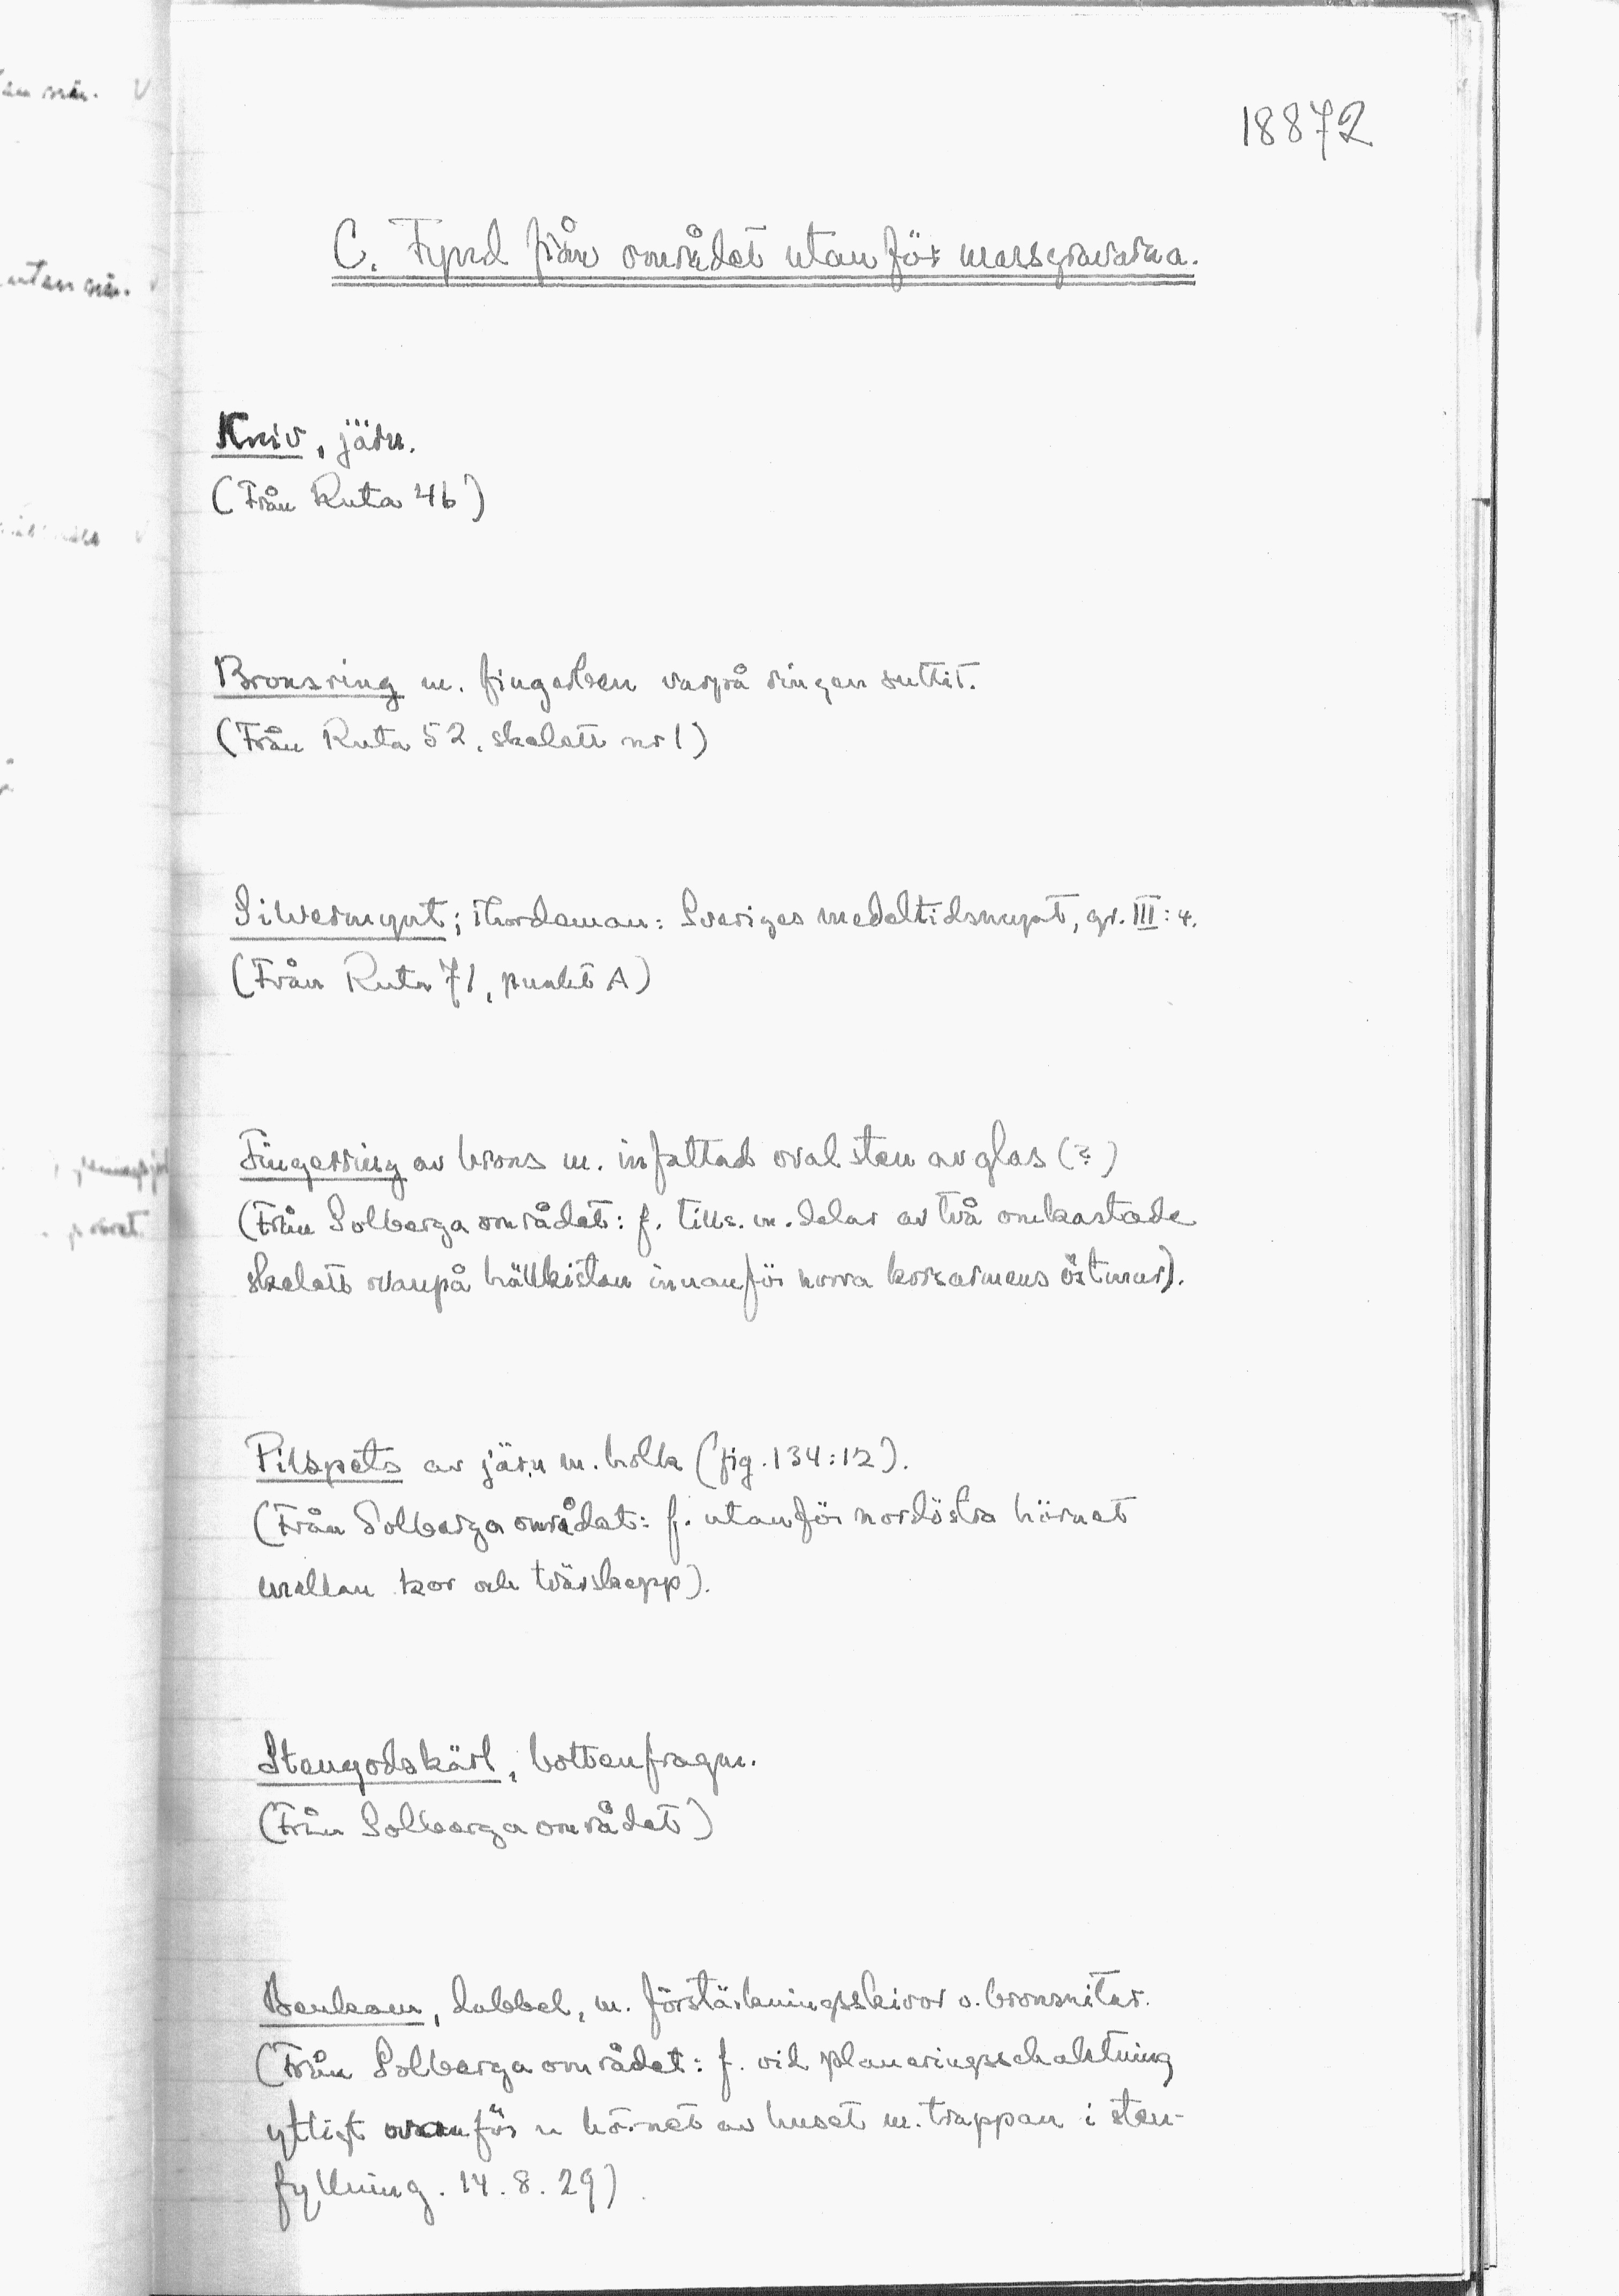 18872
C. Fynd från området utanför massgravarna.
Kniv, järn.
(Från Ruta 46)
Bronsring m. fingerben varpå ringen suttit.
(Från Ruta 52, skelett nr 1)
Silvermynt; Thordeman: Sveriges medeltidsmynt, gr. III:4.
(Från Ruta 71, punkt A)
Fingerring av brons m. infattad oval sten av glas (?)
(Från Solberga området: f. tills. m. delar av två omkastade
skelett ovanpå hällkistan innanför norra korsarmens östmur).
Pilspets av järn m. holk (fig. 134:12).
(Från Solberga området: f. utanför nordöstra hörnet
mellan kor och tvärskepp).
Stengodskärl, bottenfragm.
(Från Solberga området)
Benkam, dubbel, m. förstärkningsskivor o. bronsnitar.
(Från Solberga området: f. vid planeringsschaktning
ytligt ovanför n hörnet av huset m. trappan i sten-
fyllning. 14.8.29)